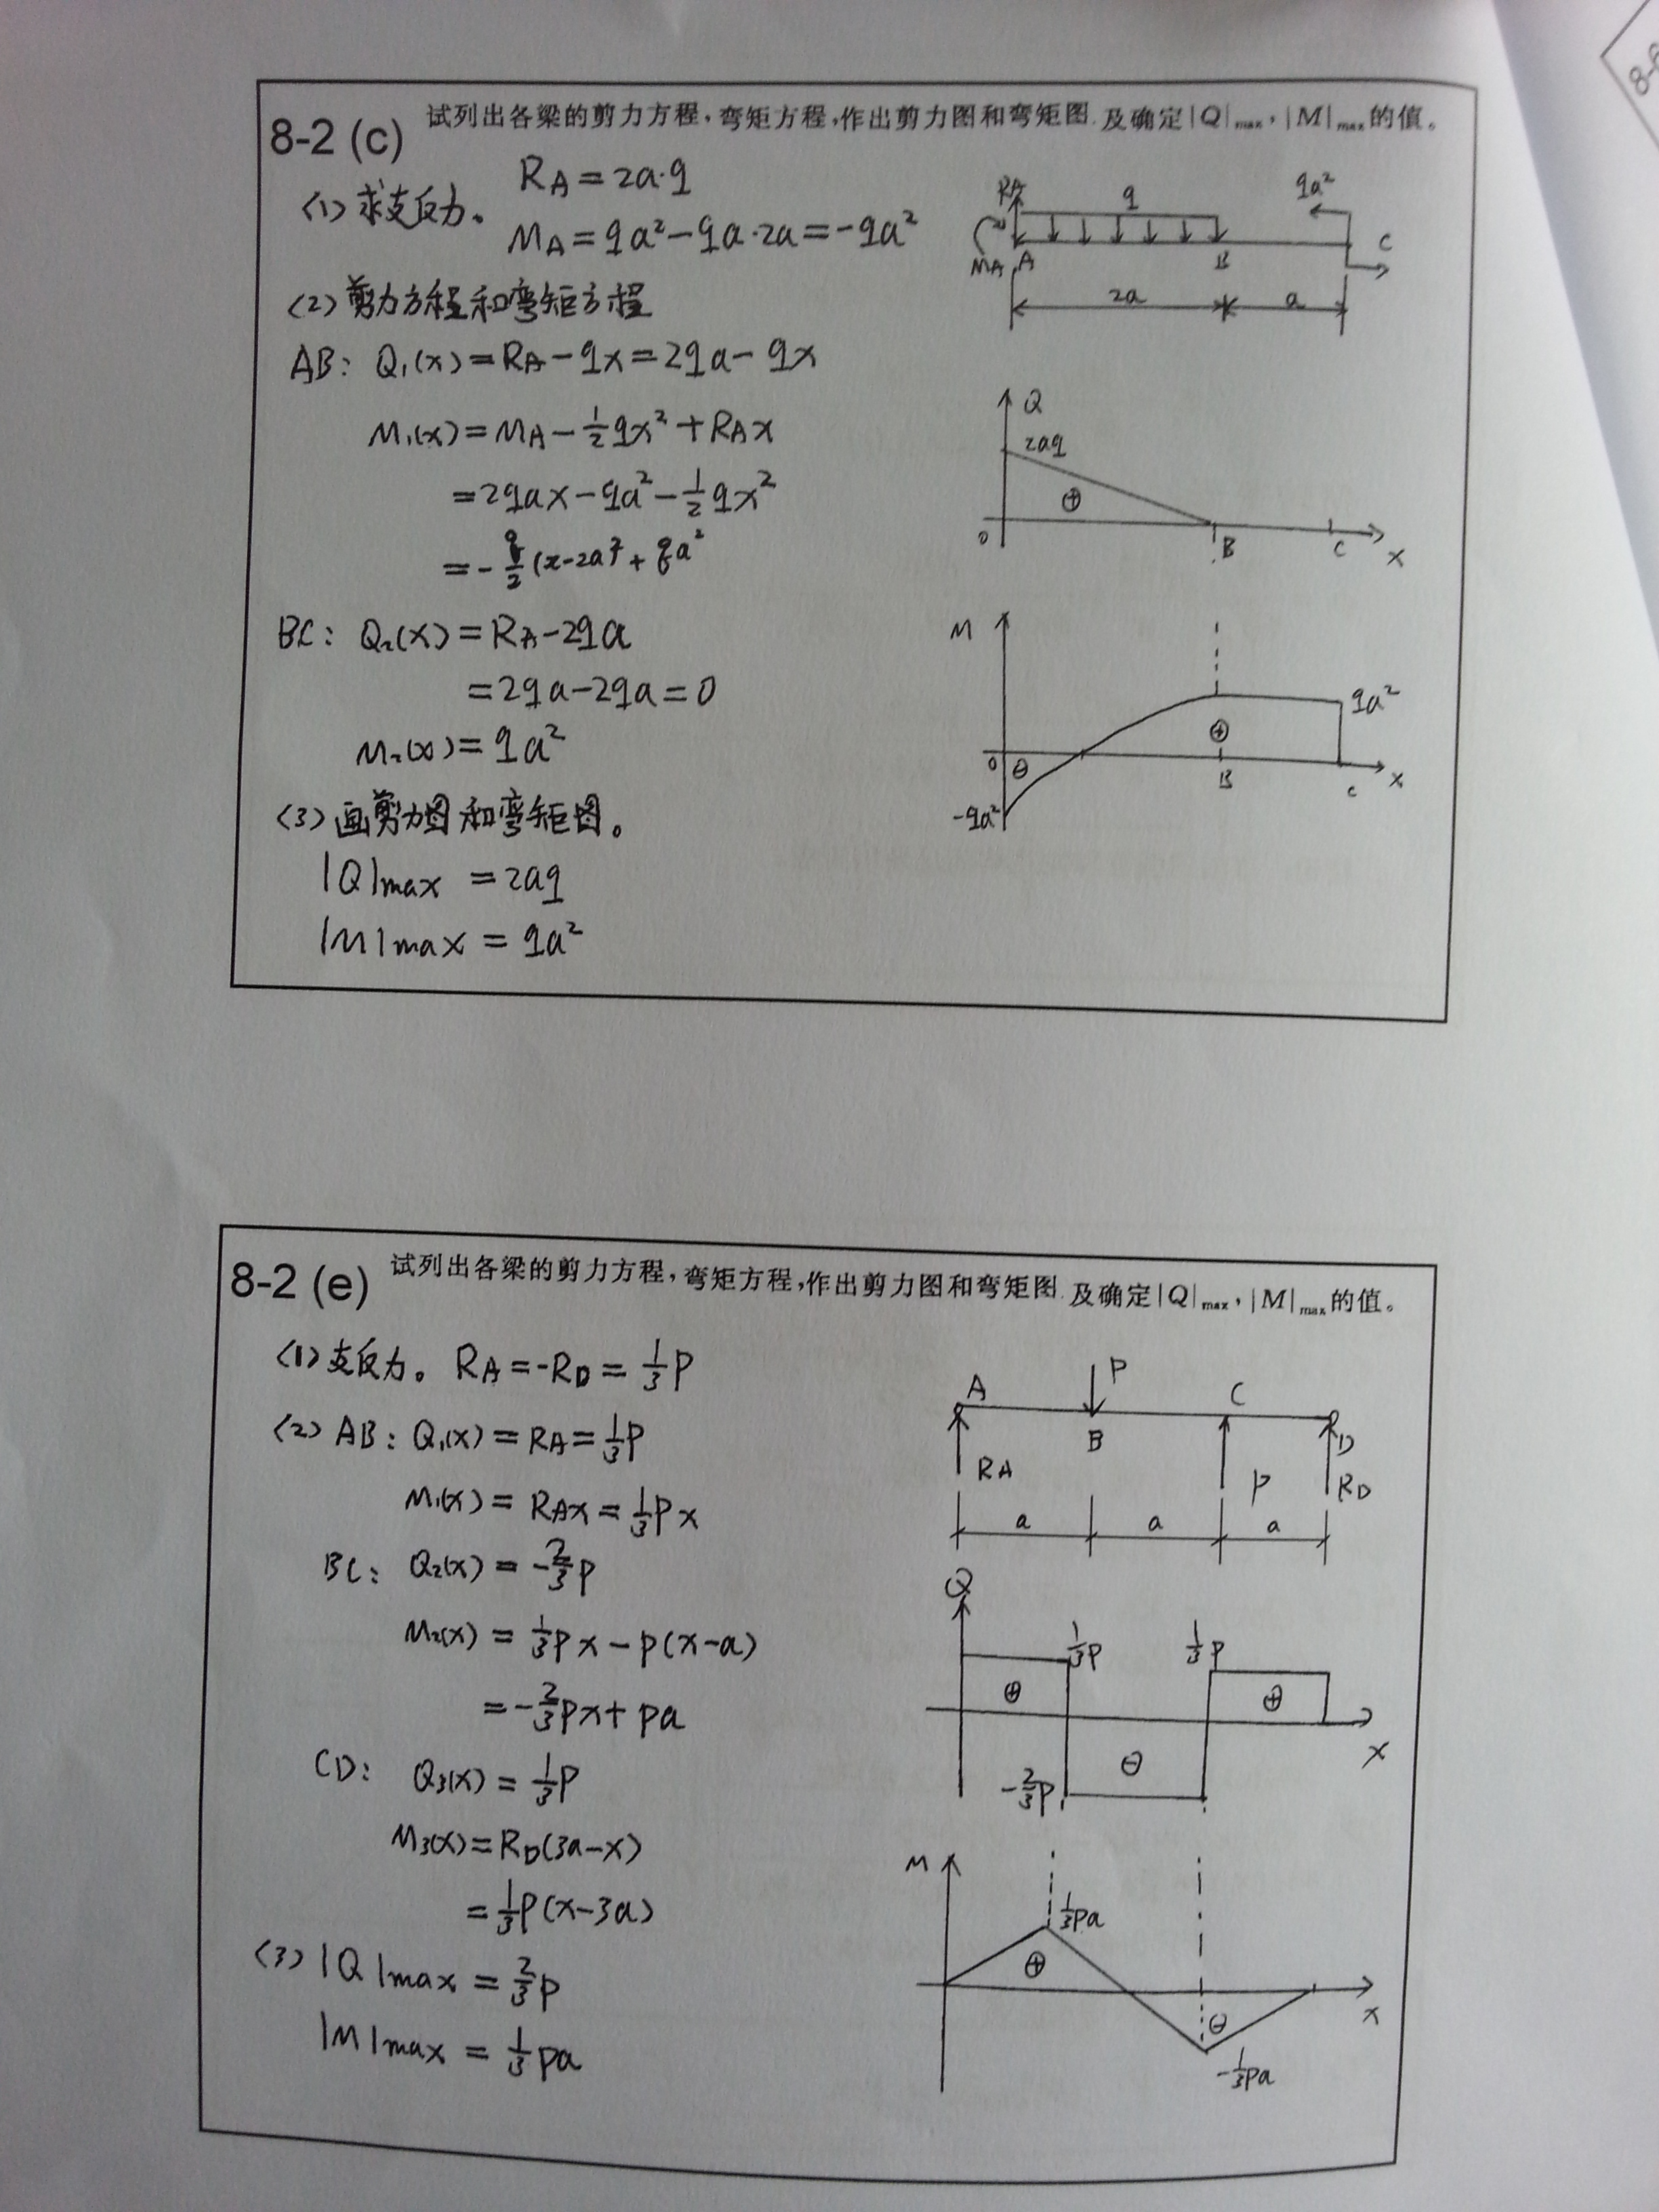 8-2 (c) 试列出各梁的剪力方程,弯矩方程,作出剪力图和弯矩图.及确定|Q|max,|M|max的值。
(1) 求支反力。 RA = 2a·q
MA = qa² - qa·2a = -qa²
(2) 剪力方程和弯矩方程
AB: Q₁(x) = RA - qx = 2qa - qx
M₁(x) = MA - ½qx² + RAx
= 2qax - qa² - ½qx²
= -q/2 (x-2a)² + qa²
BC: Q₂(x) = RA - 2qa
= 2qa - 2qa = 0
M₂(x) = qa²
(3) 画剪力图和弯矩图。
|Q|max = 2aq
|M|max = qa²
RA q qa²
MA A B C
2a a
Q
2aq
⊕
0 B C x
M
qa²
⊕
0 ⊖ B C x
-qa²
8-2 (e) 试列出各梁的剪力方程,弯矩方程,作出剪力图和弯矩图.及确定|Q|max,|M|max的值。
(1) 支反力。 RA = -RD = ⅓P
(2) AB: Q₁(x) = RA = ⅓P
M₁(x) = RAx = ⅓Px
BC: Q₂(x) = -⅔P
M₂(x) = ⅓Px - P(x-a)
= -⅔Px + Pa
CD: Q₃(x) = ⅓P
M₃(x) = RD(3a-x)
= ⅓P(x-3a)
(3) |Q|max = ⅔P
|M|max = ⅓Pa
A P C
B D
RA P RD
a a a
Q
⅓P ⅓P
⊕ ⊕
⊖ x
-⅔P
M
⅓Pa
⊕
⊖ x
-⅓Pa
8-